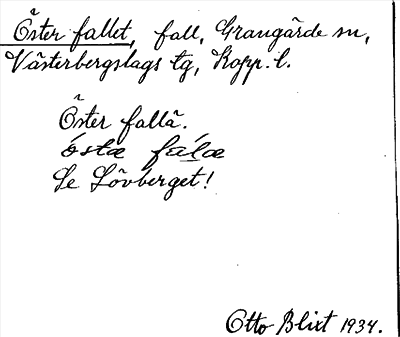 Öster fallet, fall, Grangärde sn,
Västerbergslags tg, Kopp. l.
Öster fallä.
östæ falæ
Se Lövberget!
Otto Blixt 1934.